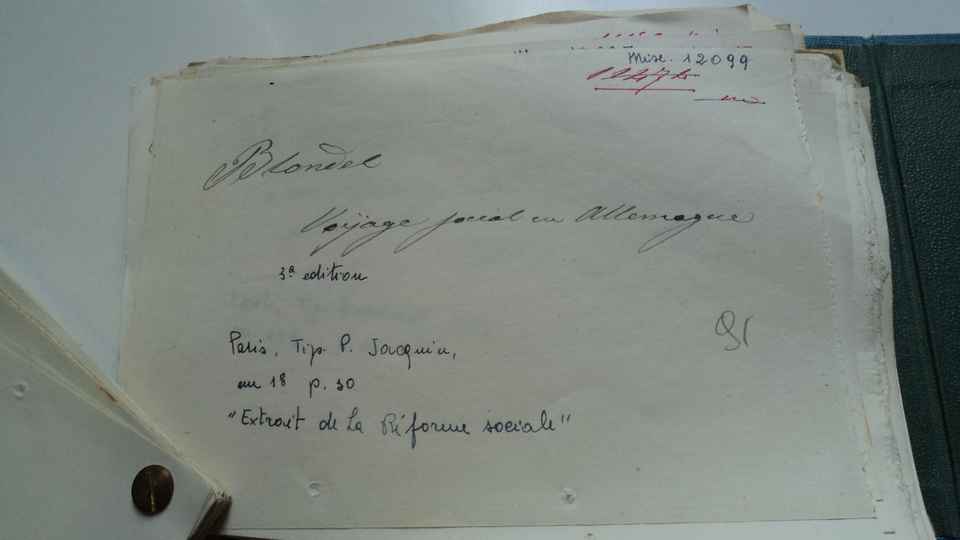 Misc. 12099
Blondel
Voÿage social en Allemagne
3ª edition
Paris, Tip. P. Jacquin,
au 18 p. 30
"Extrait de La Réforme sociale"